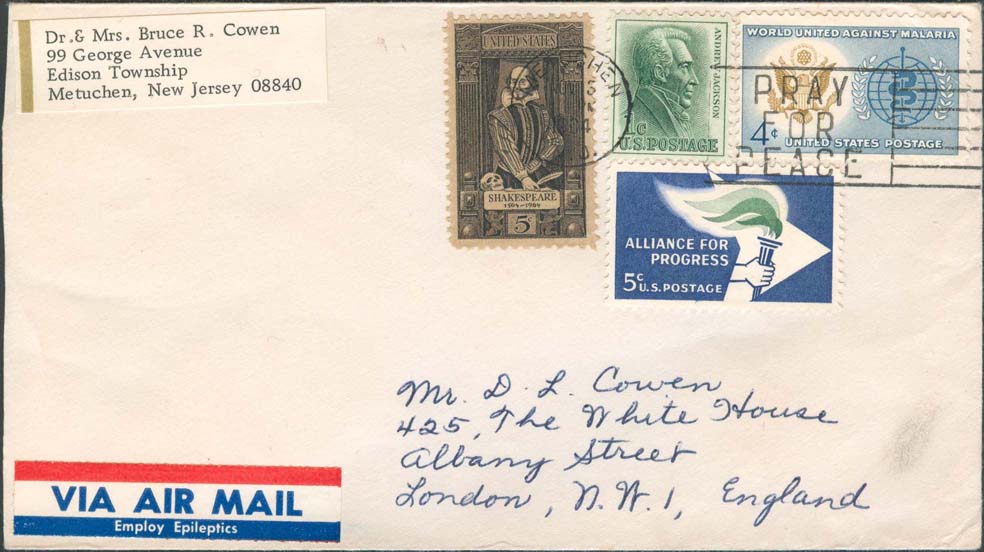 Dr. & Mrs. Bruce R. Cowen
99 George Avenue
Edison Township
Metuchen, New Jersey 08840
UNITED STATES
SHAKESPEARE
1564-1964
5c
ANDREW JACKSON
1c
U.S. POSTAGE
WORLD UNITED AGAINST MALARIA
4c
UNITED STATES POSTAGE
PRAY
FOR
PEACE
ALLIANCE FOR
PROGRESS
5c
U.S. POSTAGE
Mr. D. L. Cowen
425, The White House
Albany Street
London, N.W.1, England
VIA AIR MAIL
Employ Epileptics